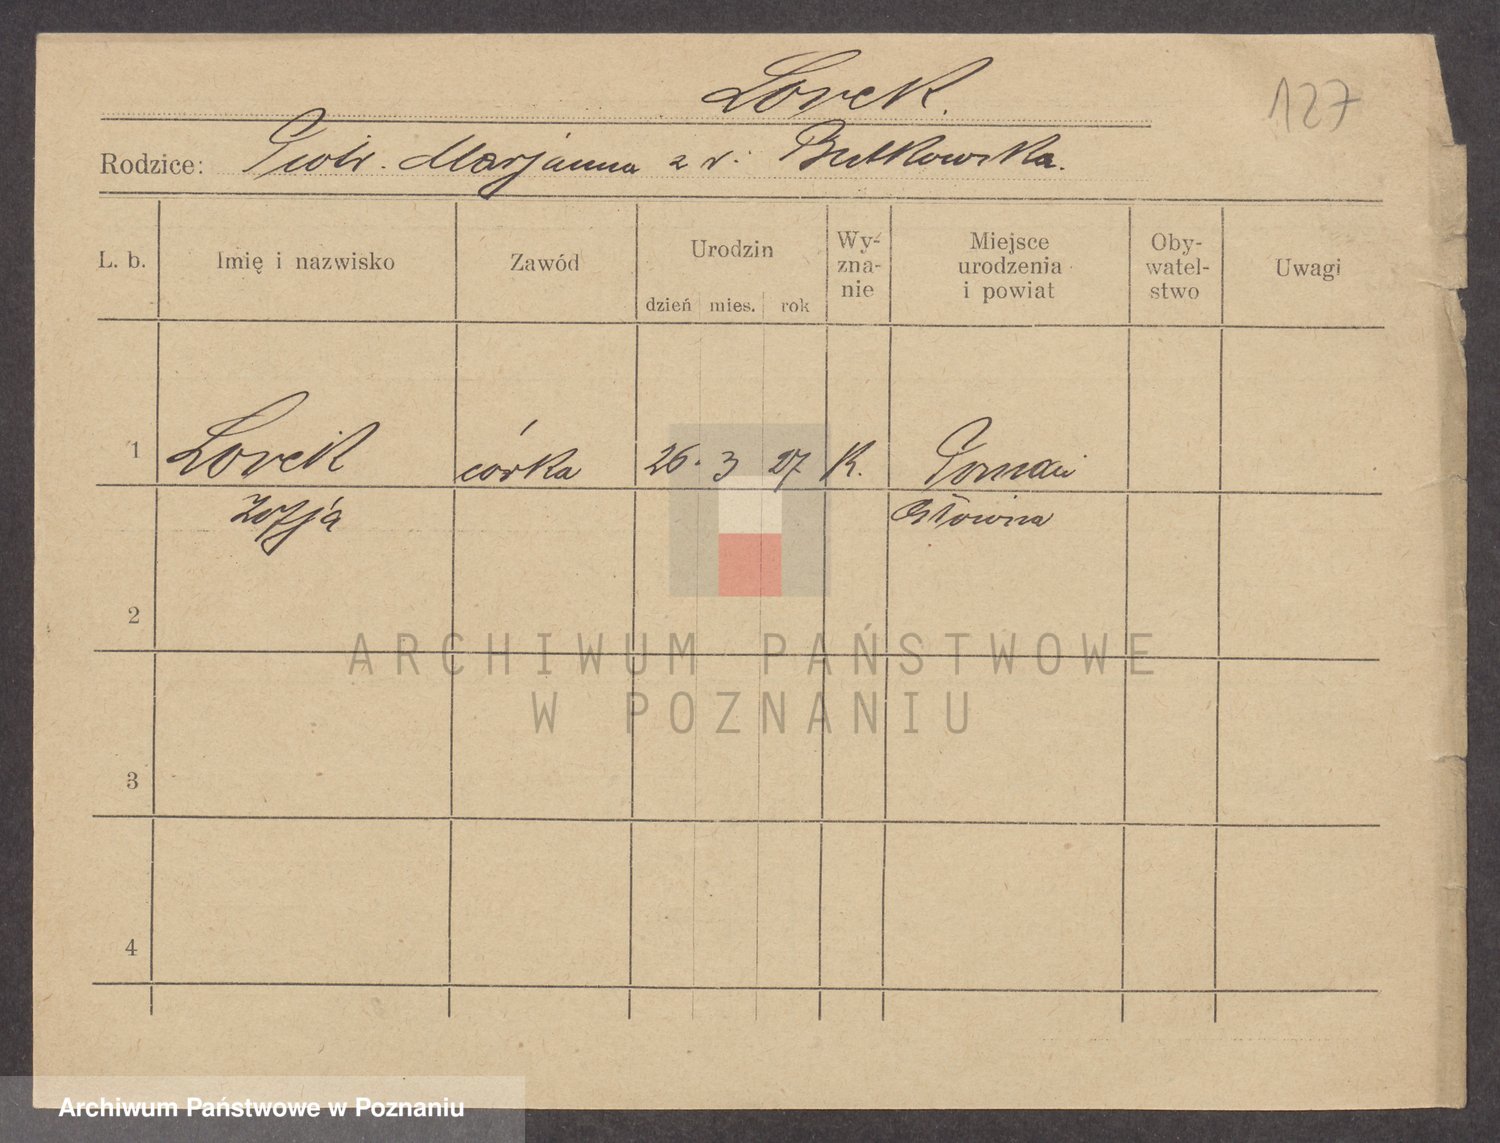 Lorek.
127
Rodzice: Piotr. Marjanna z r. Butkowska.
L. b. Imię i nazwisko Zawód Urodzin Wyznanie Miejsce urodzenia i powiat Obywatelstwo Uwagi
dzień mies. rok
1 Lorek córka 26. 3 27 K. Poznań
Zofja Główna
2
3
4
ARCHIWUM PAŃSTWOWE
W POZNANIU
Archiwum Państwowe w Poznaniu